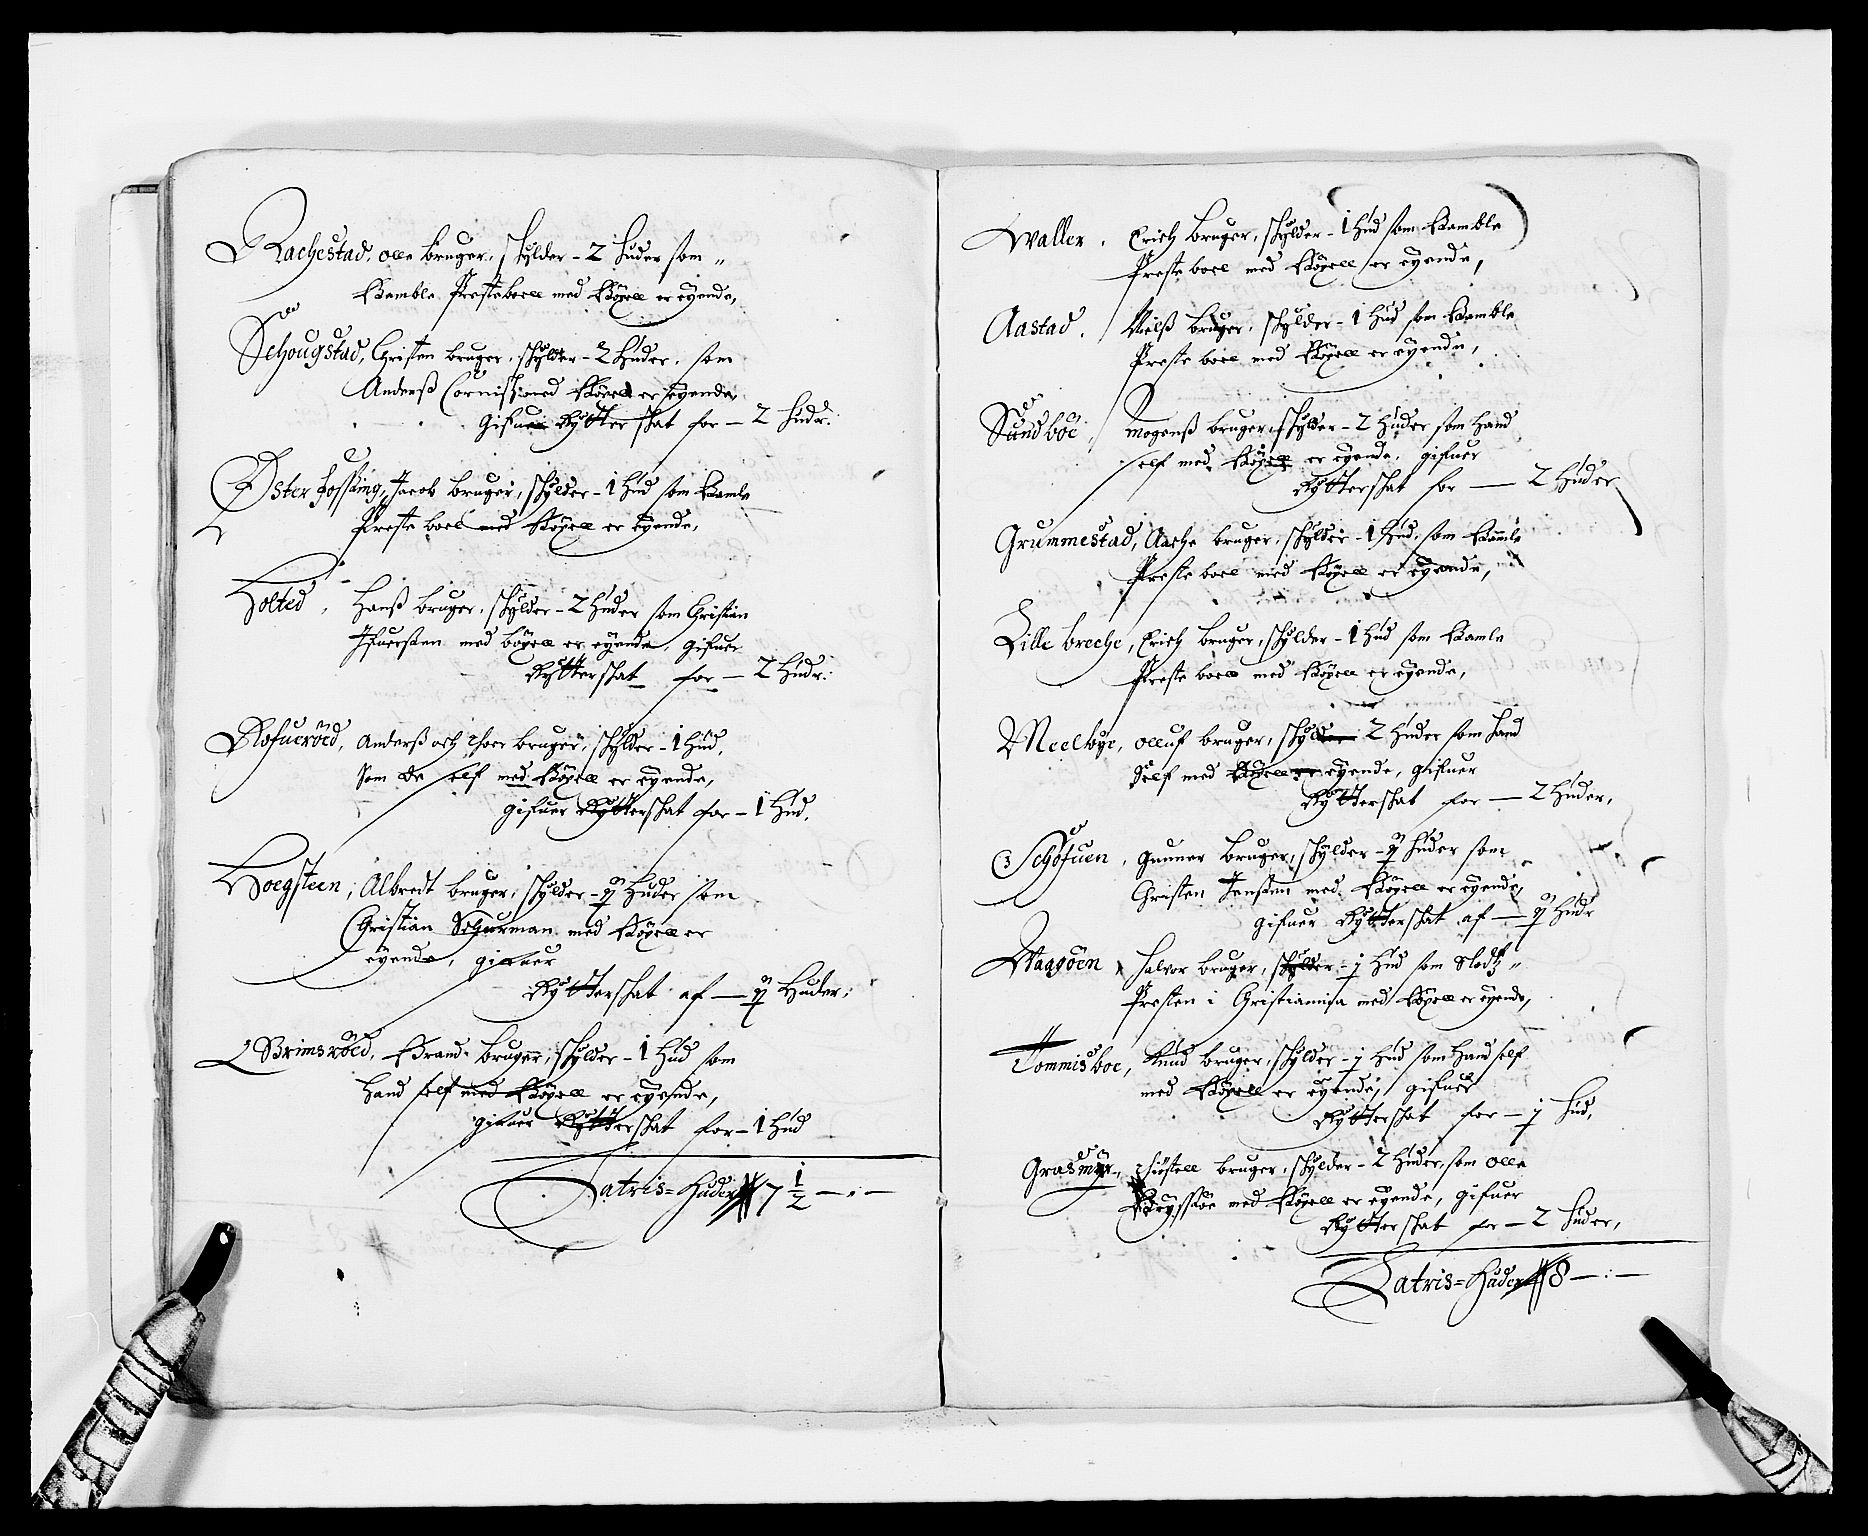 Rachestad, olle bruger, schylder - 2 huder som „
Bamble Presteboell med Böxell er eyende,
Schougstad, Christen bruger, schylder - 2 Huder, som
Anderß Cornißen med Böxell er eyende
gifuer Rytterschat for - 2 hudr:
Øster Jossing, Jacob bruger, schylder - 1 Hud som Bamle
Preste boel med Böxell er eyende,
Holted, Hanß bruger, schylder - 2 huder som Christian
Ifuerßen med böxell er eyende, gifuer
Rytterschat for - 2 Hudr:
Rofueröed, Anderß och bruger, schylder - 1 Hud,
Som de self med Böxell er eyende,
gifuer Rytterschat for - 1 Hud,
Hoegsteen, Albredt bruger, schylder - Huder som
Christian Schurman med Böxell er
eyende, gifuer
Rytterschat af - Huder:
Brimsröed, Brand bruger, schylder - 1 Hud som
Hand self med Böxell er eyende,
gifuer Rytterschat for - 1 Hud
Latris = Huder 7 1/2 - : -
Waller, Erich bruger, schylder - 1 Hud som Bamble
Preste boel med Böxell er eyende,
Aastad, Nielß bruger, schylder - 1 Hud som Bamble
Preste boel med Böxell er eyende,
Sundboe, Mogenß bruger, schylder - 2 Huder som Hand
self med Böxell er eyende, gifuer
Rytterschat for - 2 Huder
Grummestad, Aache bruger, schylder - 1 Hud, som Bamle
Preste boel med Böxell er eyende,
Lille breche, Erich bruger, schylder - 1 Hud som Bamle
Preste boel med Böxell er eyende,
Meelbye, olluf bruger, schylder 2 Huder som Hand
Self med Böxell er eyende, gifuer
Rytterschat for - 2 Huder,
Schofuen, Gunner bruger, schylder - Huder som
Christen Jenßen med Böxell er eyende,
gifuer Rytterschat af - Hudr
Waagöen, Halvor bruger, schylder - Hud som Slodtz „
Presten i Christiania med Böxell er eyende,
Tommisboe, Knud bruger, schylder - Hud som Hand self
med Böxell er eyende, gifuer
Rytterschat for - Hud,
Grasmyr, bruger, schylder - 2 Huder, som Olle
med Böxell er eyende, gifuer
Rytterschat for - 2 Huder,
Latris = Huder 8 - : -